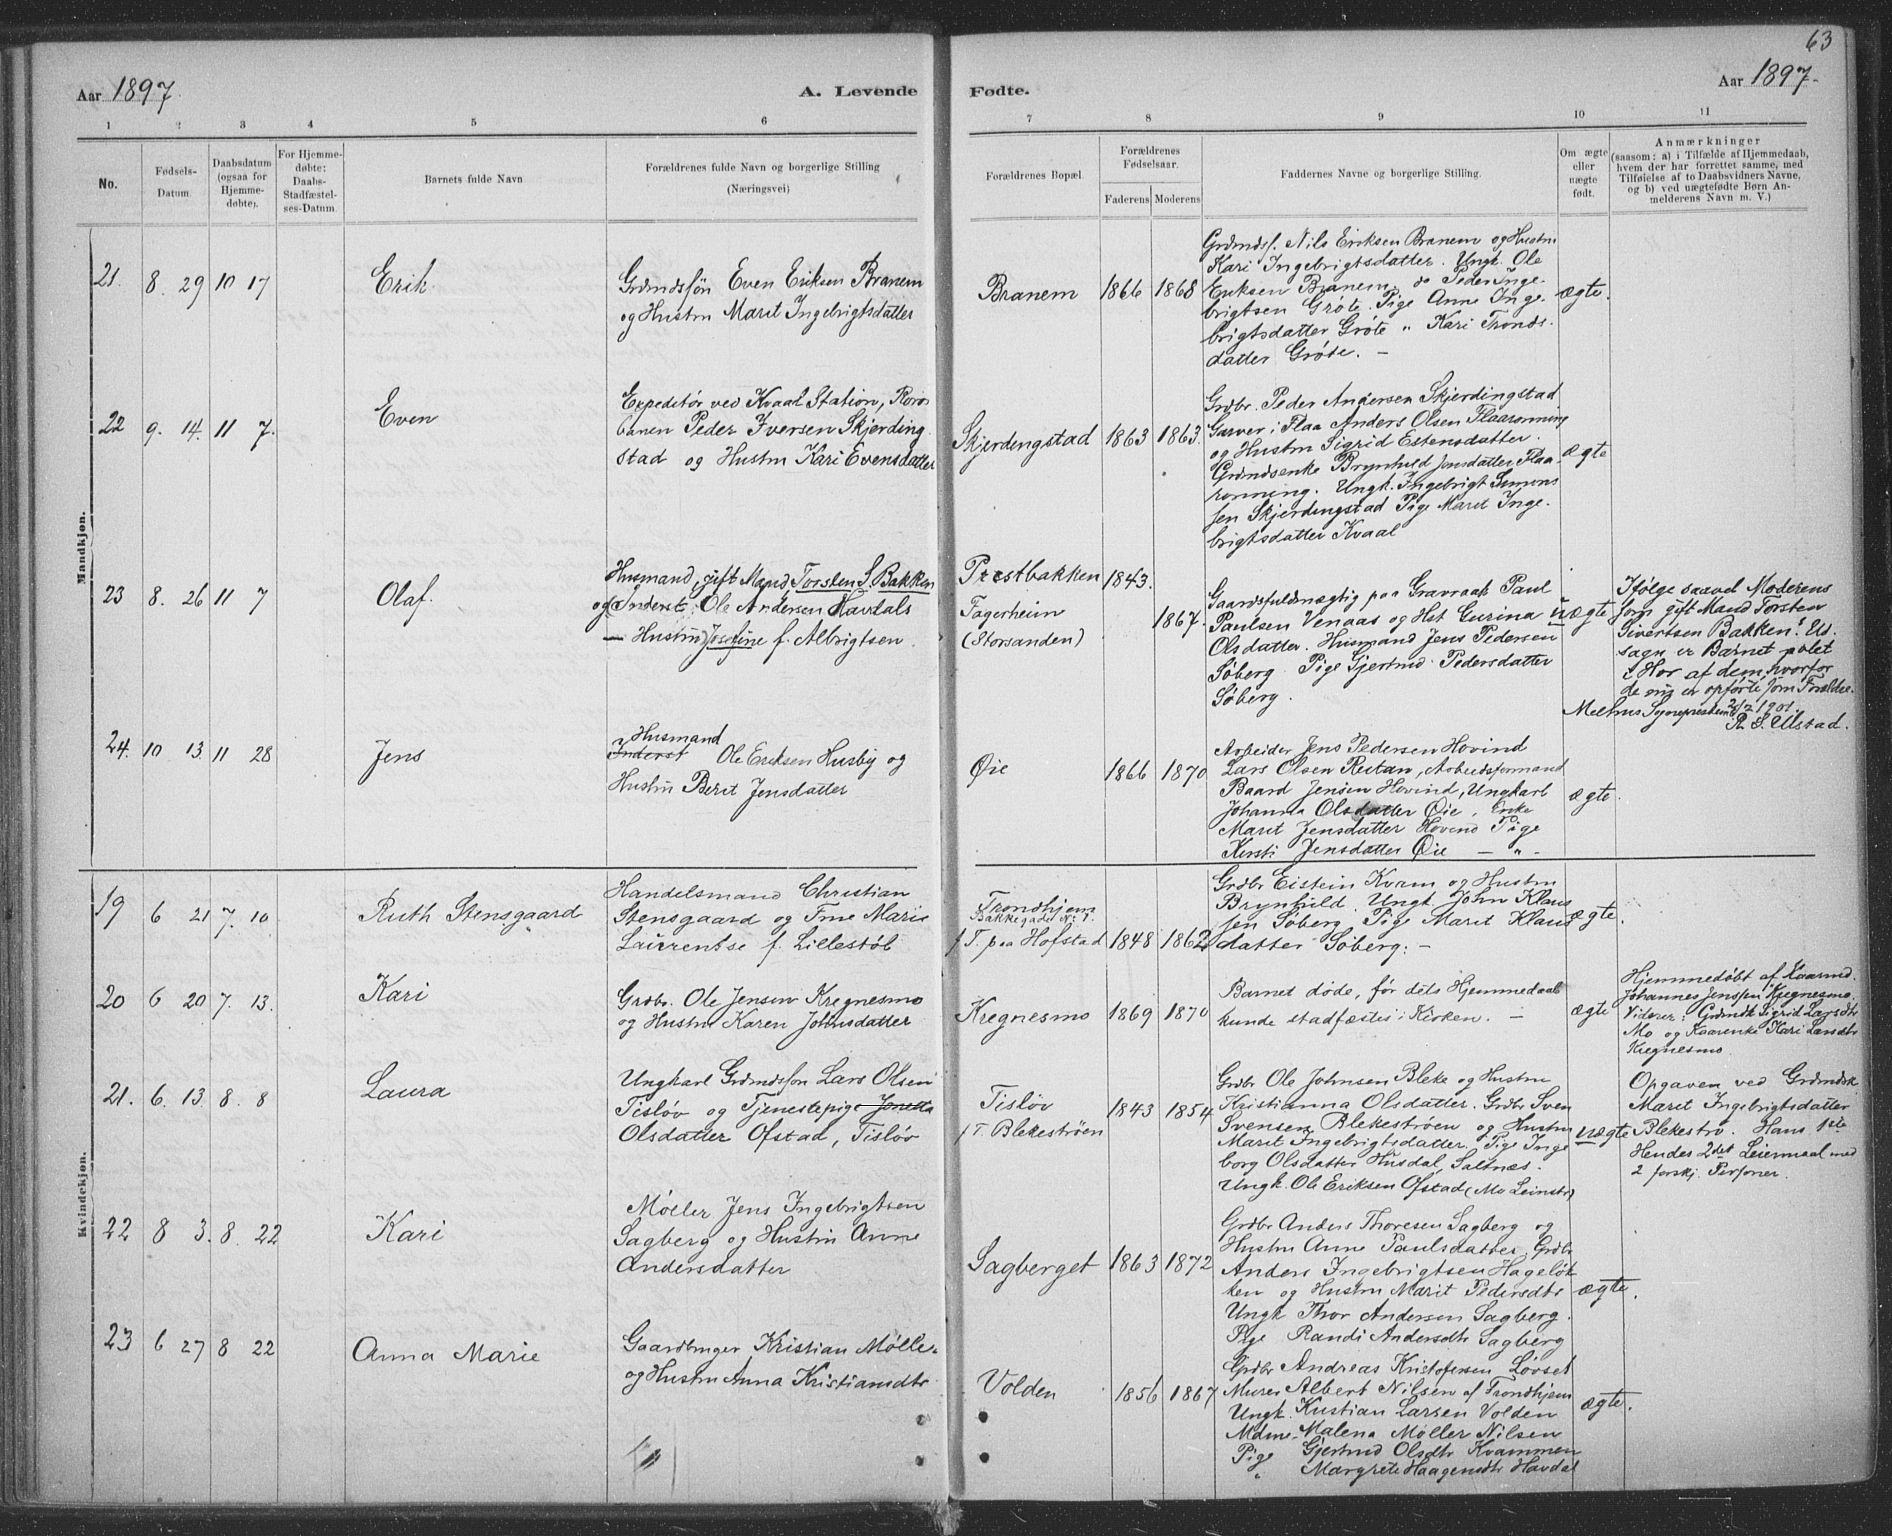 63
Aar 1897.
A. Levende
Fødte.
Aar 1897.
1 2 3 4 5 6
7 8 9 10 11
No.
Fødsels-
Datum.
Daabsdatum
(ogsaa for
Hjemme-
døbte).
For Hjemme-
døbte:
Daabs-
Stadfæstel-
ses-Datum.
Barnets fulde Navn
Forældrenes fulde Navn og borgerlige Stilling
(Næringsvei)
Forældrenes Bopæl.
Forældrenes
Fødselsaar.
Faderens Moderens
Faddernes Navne og borgerlige Stilling.
Om ægte
eller
uægte
født.
Anmærkninger
(saasom: a) i Tilfælde af Hjemmedaab,
hvem der har forrettet samme, med
Tilføielse af to Daabsvidners Navne,
og b) ved uægtefødte Børn An-
melderens Navn m. V.)
Mandkjøn.
21 8 29 10 17
Erik.
Grdmdssøn Even Eriksen Branem
og Hustru Marit Ingebrigtsdatter
Branem 1866 1868
Grdmdsf. Nils Eriksen Branem og Hustru
Kari Ingebrigtsdatter. Ungk. Ole
Eriksen Branem, do Peder Inge-
brigtsen Grøte. Pige Anne Inge-
brigtsdatter Grøte " Kari Tronds-
datter Grøte. —
ægte.
22 9. 14. 11 7.
Even
Expeditør ved Kvaal Station, Røros
banen Peder Iversen Skjerding
stad og Hustru Kari Evensdatter
Skjerdingstad 1863 1863.
Grdbr. Peder Andersen Skjerdingstad
Garver i Flaa Anders Olsen Flaarønning
og Hustru Sigrid Estensdatter.
Grdmdsenke Brynhild Jonsdatter Flaa-
rønning. Ungk. Ingebrigt Simons
sen Skjerdingstad Pige Marit Inge-
brigtsdatter Kvaal
ægte
23 8. 26 11 7
Olaf.
Husmand, gift Mand Torsten S. Bakken
og Inderst: Ole Andersen Havdals
— Hustru Josefine f. Albrigtsen.
Prestbakken 1843.
Fagerheim
(Storsanden) 1867.
Gaardsfuldmægtig paa Gravraak Paul
Paulsen Venaas og Hst Gurina
Olsdatter. Husmand Jens Pedersen
Søberg. Pige Gjertrud Pedersdatter
Søberg.
uægte
Ifølge saavel Moderens
som gift Mand Torsten
Sivertsen Bakkens Ud-
sagn er Barnet avlet
i Hor af dem, hvorfor
de nu er opførte som Forældre.
Melhus Sognepræstemb. 2/2 1901.
R. S. Ulstad.
24. 10 13 11 28
Jens
Husmand
Inderst Ole Eriksen Husby og
Hustru Berit Jensdatter
Øie 1866 1870
Arbeider Jens Pedersen Hovind
Lars Olsen Restan, Arbeidsformand
Baard Jensen Hovind, Ungkarl
Johanna Olsdatter Øie, Enke
Marit Jensdatter Hovind Pige
Kersti Jensdatter Øie — " -
ægte.
Kvindekjøn.
19 6 21 7. 10
Ruth Stensgaard
Handelsmand Christian
Stensgaard og Frue Marie
Laurentse f. Lillestøl
Trondhjem
Bakkegade N: 1.
f. T. paa Hofstad 1848 1862
Grdbr Eistein Kvam og Hustru
Brynhild. Ungk. John Klaus
sen Søberg. Pige Marit Klaus
datter Søberg. —
ægte.
20 6 20 7. 13.
Kari
Grdbr. Ole Jensen Kregnesmo
og Hustru Karen Johnsdatter
Kregnesmo 1869 1870
Barnet døde, før dets Hjemmedaab
kunde stadfæstes i Kirken. —
ægte
Hjemmedøbt af Kaarmd.
Johannes Jenssen Kregnesmo.
Vidner: Grdmdk Sigrid Larsdtr
Mo og Kaarenke Kari Larsdtr
Kregnesmo.
21. 6. 13. 8. 8
Laura
Ungkarl Grdmdssøn Lars Olsen
Tisløv og Tjenestepige Jonetta
Olsdatter Ofstad, Tisløv
Tisløv 1843 1854
f. T. Blekestrøen
Grdbr Ole Johnsen Bleke og Hustru
Kristianna Olsdatter. Grdbr Sven
Svensen Blekestrøen og Hustru
Marit Ingebrigtsdatter. Pige Inge
borg Olsdatter Husdal, Saltnes.
Ungk. Ole Eriksen Ofstad (Mo Leinstr)
uægte
Opgaven ved Grdmdsk
Marit Ingebrigtsdatter
Blekestrø. Hans 1ste
Hendes 2det Leiermaal med
2 forskj. Personer.
22 8 3. 8. 22
Kari
Møller Jens Ingebrigtsen
Sagberg og Hustru Anne
Andersdatter
Sagberget 1863 1872
Grdbr Anders Thoresen Sagberg og
Hustru Anne Paulsdatter. Grdbr
Anders Ingebrigtsen Hageløk
ken og Hustru Marit Pedersdtr
Ungk Thor Andersen Sagberg.
Pige Randi Andersdtr Sagberg
ægte.
23 6 27 8 22
Anna Marie
Gaardbruger Kristian Møller
og Hustru Anna Kristiansdtr
Volden 1856 1867
Grdbr Andreas Kristofersen Løvset
Murer Albert Nilsen af Trondhjem
Ungk. Kristian Larsen Volden
Mdm. Malena Møller Nilsen
Pige Gjertrud Olsdtr Kvammen
" Margrete Haagensdtr Havdal
ægte.